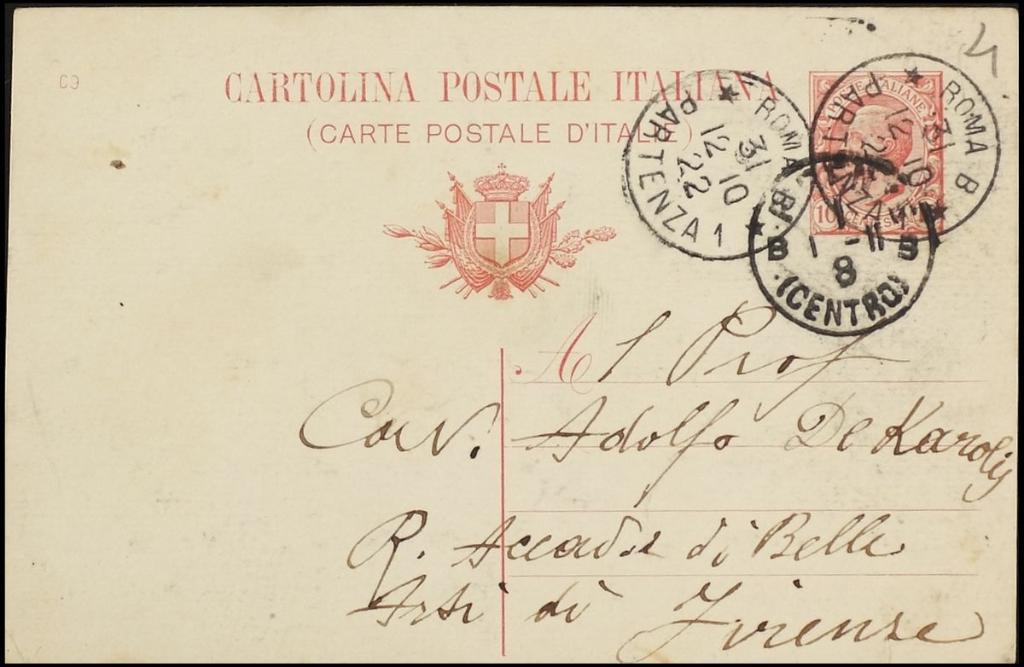 C9
CARTOLINA POSTALE ITALIANA
(CARTE POSTALE D'ITALIE)
ROMA B.
31 10
12 22
PARTENZA 1
ROMA B
31 10
12
PARTENZA
1 - 11
8
B B
(CENTRO)
10
Al Prof
Cav. Adolfo De Karolis
R. Accad. di Belle
Arti di Firenze